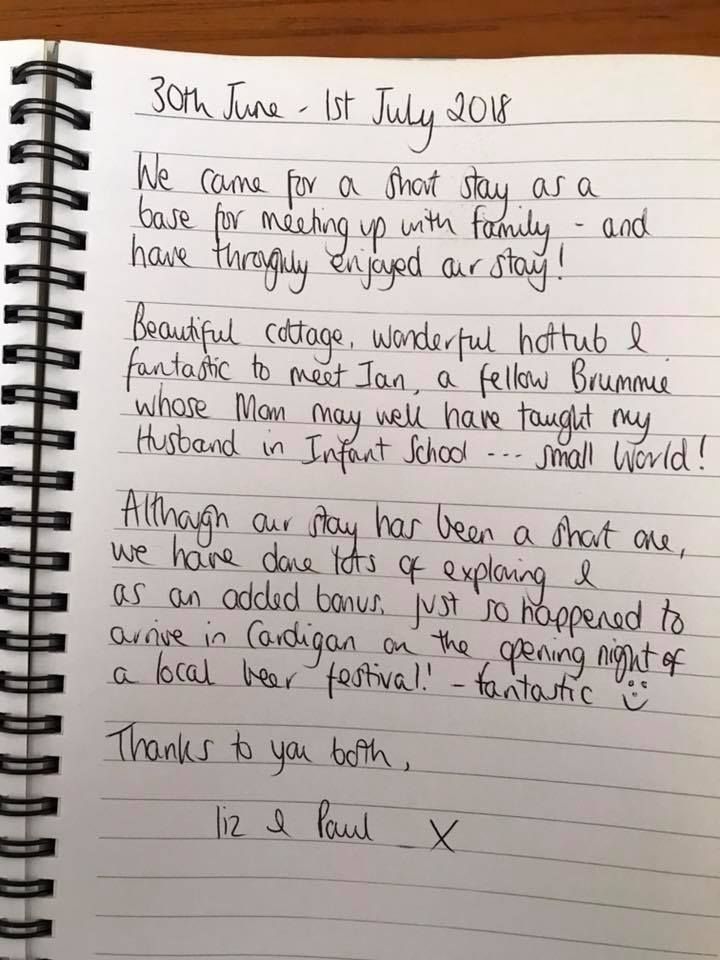 30th June - 1st July 2018
We came for a short stay as a
base for meeting up with family - and
have throughly enjoyed our stay!
Beautiful cottage, wonderful hottub &
fantastic to meet Ian, a fellow Brummie
whose Mom may well have taught my
Husband in Infant School --- small World!
Although our stay has been a short one,
we have done lots of exploring &
as an added bonus, just so happened to
arrive in Cardigan on the opening night of
a local beer festival! - fantastic ☺
Thanks to you both,
Liz & Paul X